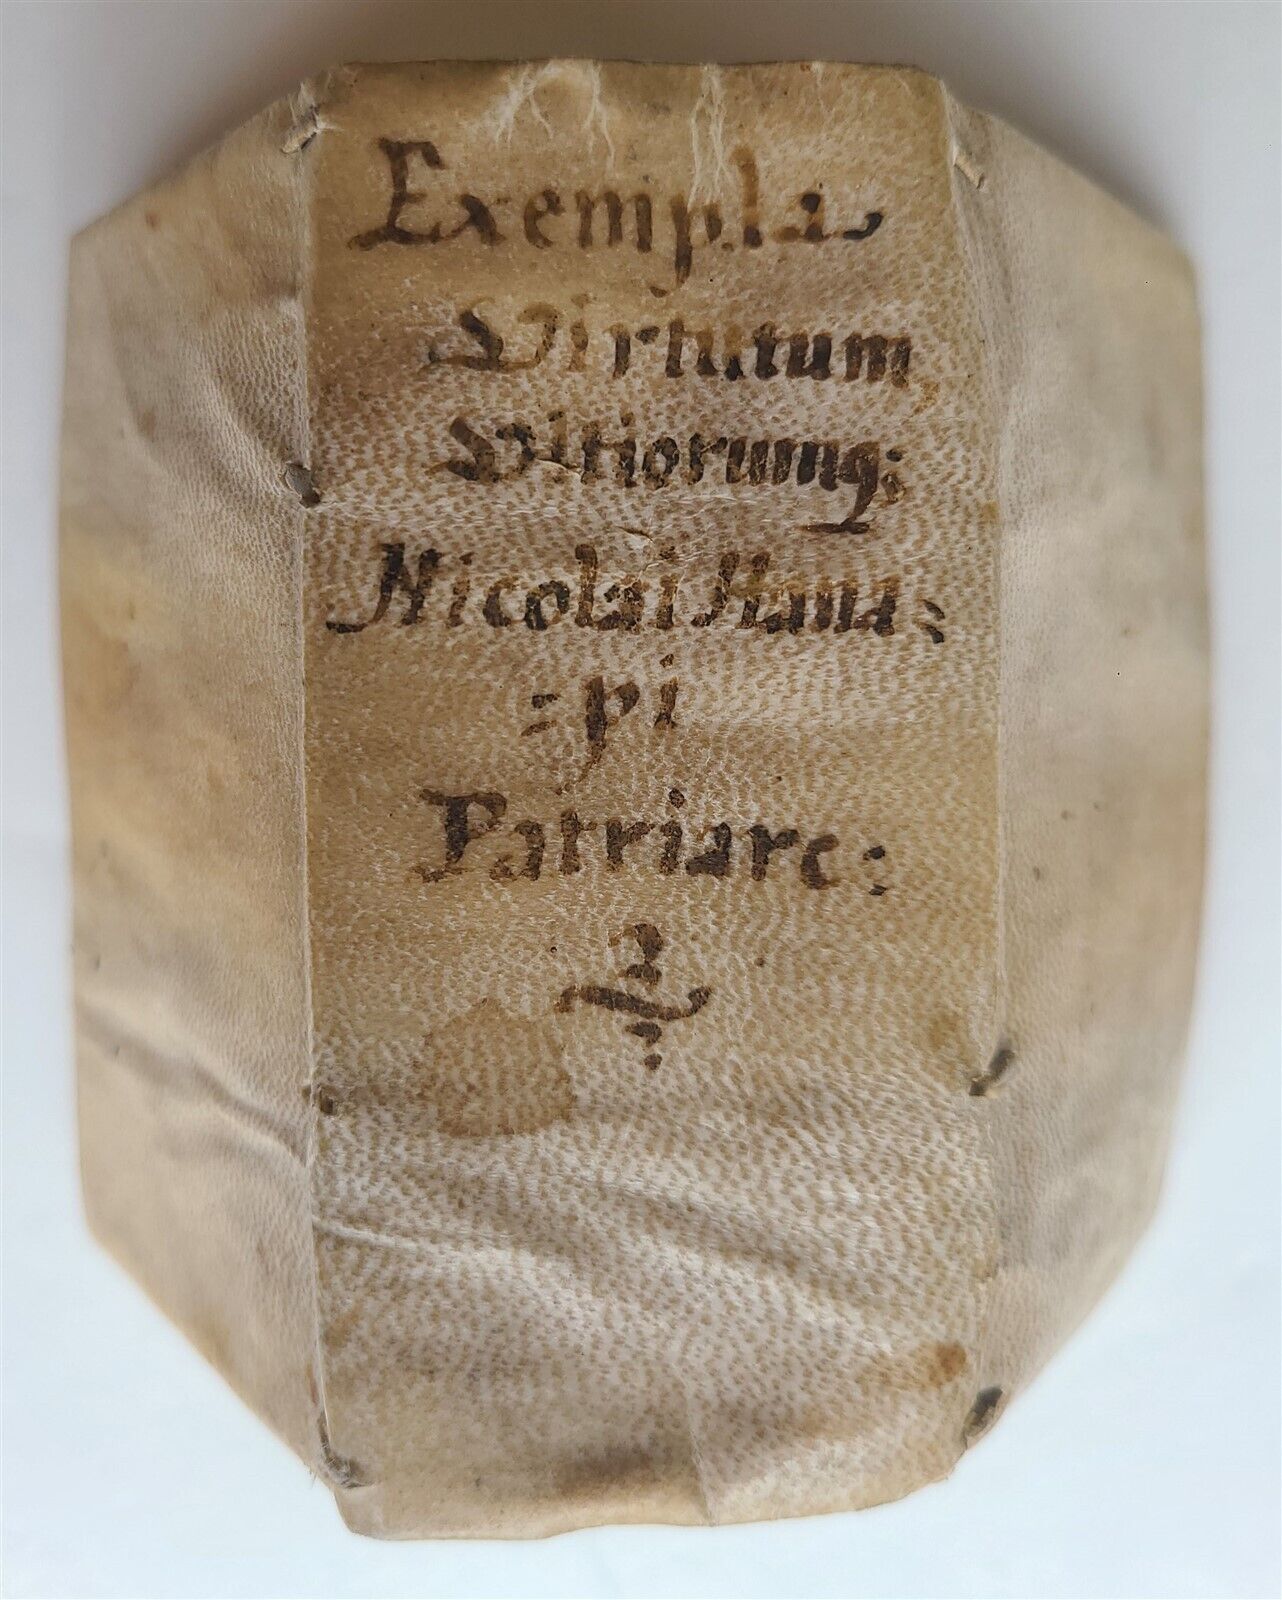 Exempla
Virtutum
Vitiorumq;
Nicolai Hana=
=pi
Patriarc: